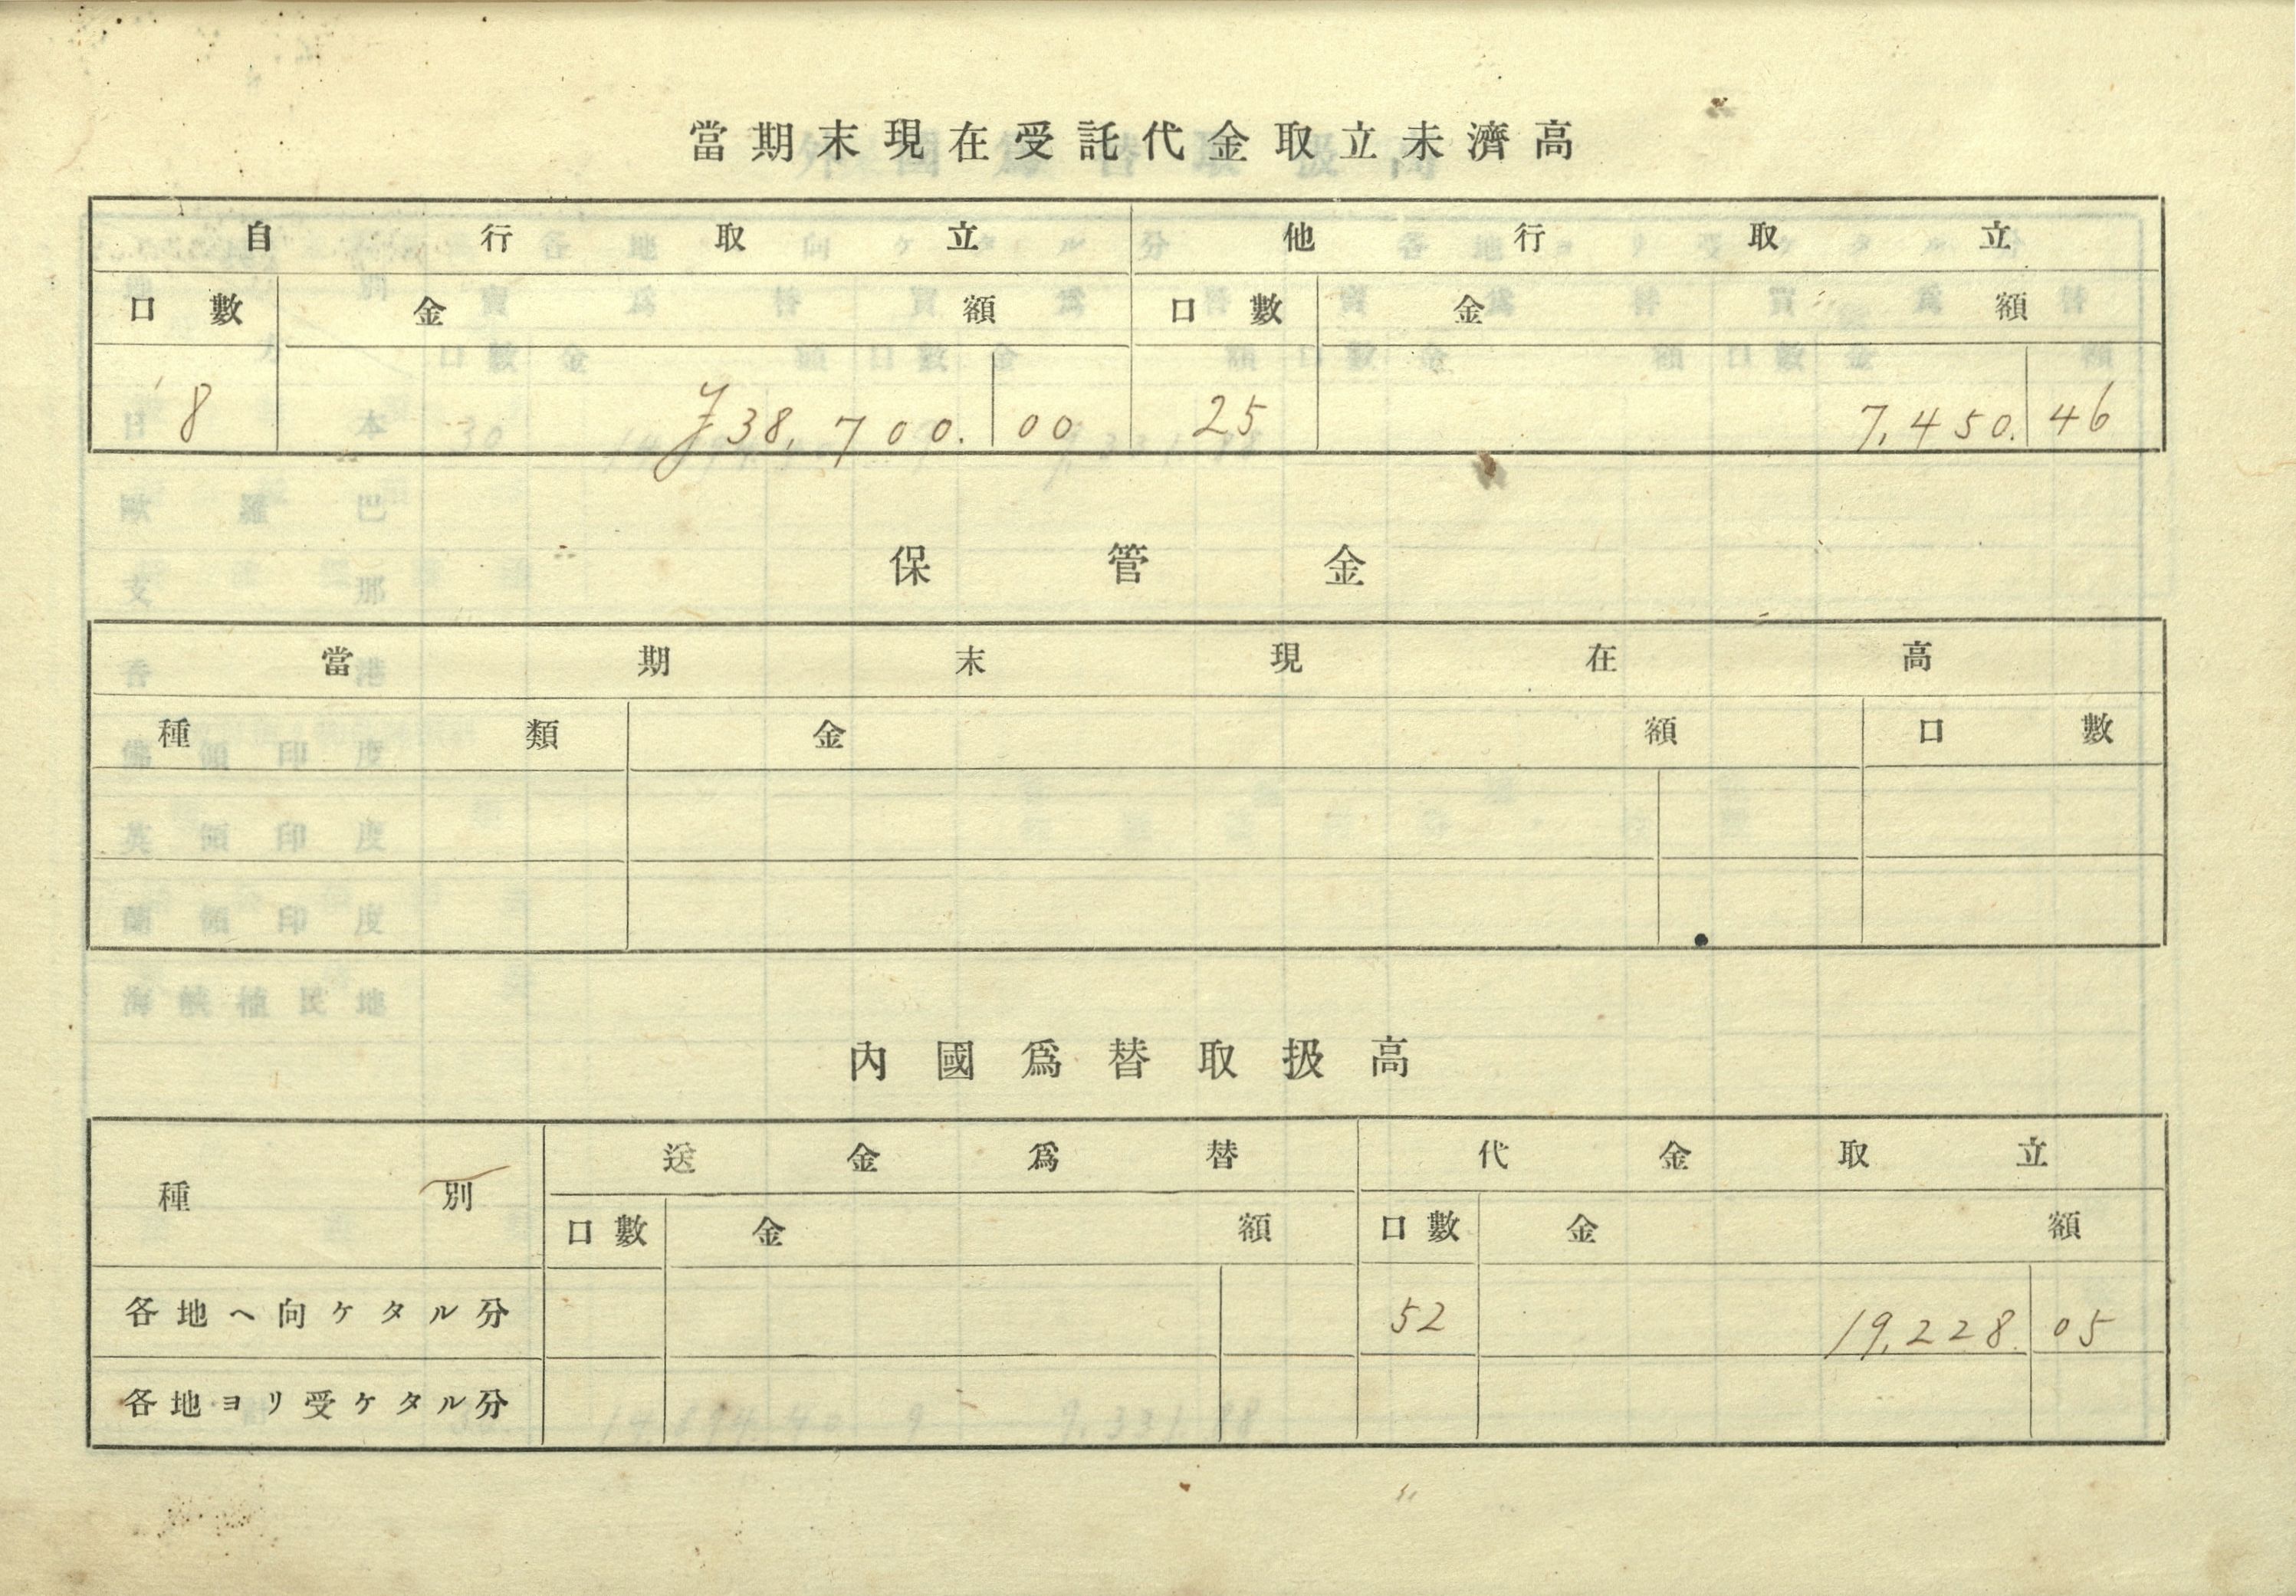 當期末現在受託代金取立未濟高
自行取立 他行取立
口數 金額 口數 金額
8 ¥38,700.00 25 7,450.46
保管金
當期末現在高
種類 金額 口數
內國爲替取扱高
種別 送金爲替 代金取立
口數 金額 口數 金額
各地ヘ向ケタル分 52 19,228.05
各地ヨリ受ケタル分